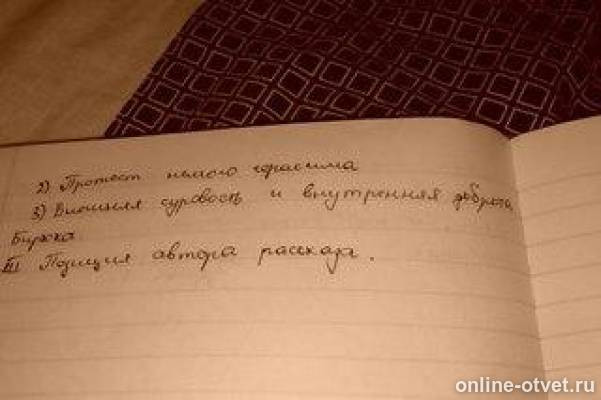 2) Протест немого Герасима
3) Внешняя суровость и внутренняя доброта
Бирюка.
III Позиция автора рассказа.
online-otvet.ru